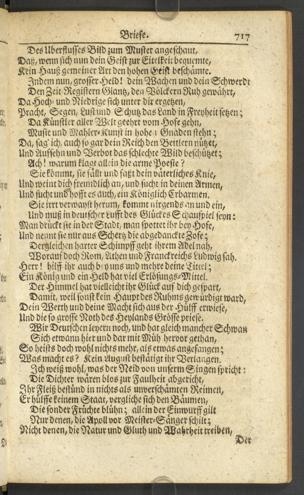 Briefe. 717
Des Uberflusses Bild zum Muster angeschaut,
Daß, wenn sich nun dein Geist zur Eitelkeit bequemte,
Kein Hauß gemeiner Art den hohen Geist beschämte.
Indem nun, grosser Held! dein Wachen und dein Schwerdt
Den Zeit-Registern Glantz, den Völckern Ruh gewährt,
Da Hoch und Niedrige sich unter dir ergetzen,
Pracht, Segen, Lust und Schutz das Land in Freyheit setzen;
Da Künstler aller Welt geehrt vom Hofe gehn,
Music und Mahler-Kunst in hohen Gnaden stehn;
Da, sag' ich, auch so gar dein Reich den Bettlern nützet,
Und Aufsehn und Verbot das schlechte Wild beschützet;
Ach! warum klagt allein die arme Poesie?
Sie kömmt, sie fällt und faßt dein väterliches Knie,
Und weint dich freundlich an, und sucht in deinen Armen,
Und sucht und hofft es auch, ein Königlich Erbarmen.
Sie irrt verwayst herum, kommt nirgends an und ein,
Und muß in deutscher Lufft des Glückes Schauspiel seyn:
Man drückt sie in der Stadt, man spottet ihr bey Hofe,
Und nennt sie nur aus Schertz die abgedanckte Zofe;
Dergleichen harter Schimpff geht ihrem Adel nah,
Worauf doch Rom, Athen und Franckreichs Ludwig sah.
Herr! hilff ihr auch bey uns und mehre deine Tittel;
Ein König und ein Held hat viel Erlösungs-Mittel.
Der Himmel hat vielleicht ihr Glück auf dich gespart,
Damit, weil sonst kein Haupt des Ruhms gewürdigt ward,
Dein Werth und deine Macht sich aus der Hülff erwiese,
Und die so grosse Noth des Heylands Grösse priese.
Wir Deutschen leyern noch, und hat gleich mancher Schwan
Sich etwann hier und dar mit Müh hervor gethan,
So heists doch wohl nichts mehr, als etwas angefangen;
Was macht es? Kein August bestätigt ihr Verlangen.
Ich weiß wohl, was der Neid von unserm Singen spricht:
Die Dichter wären blos zur Faulheit abgericht,
Ihr Fleiß bestünd in nichts als unverschämten Reimen,
Er hülffe keinem Staat, vergliche sich den Bäumen,
Die sonder Früchte blühn; allein der Einwurff gilt
Nur denen, die Apoll vor Meister-Sänger schilt;
Nicht denen, die Natur und Gluth und Wahrheit treiben,
Der